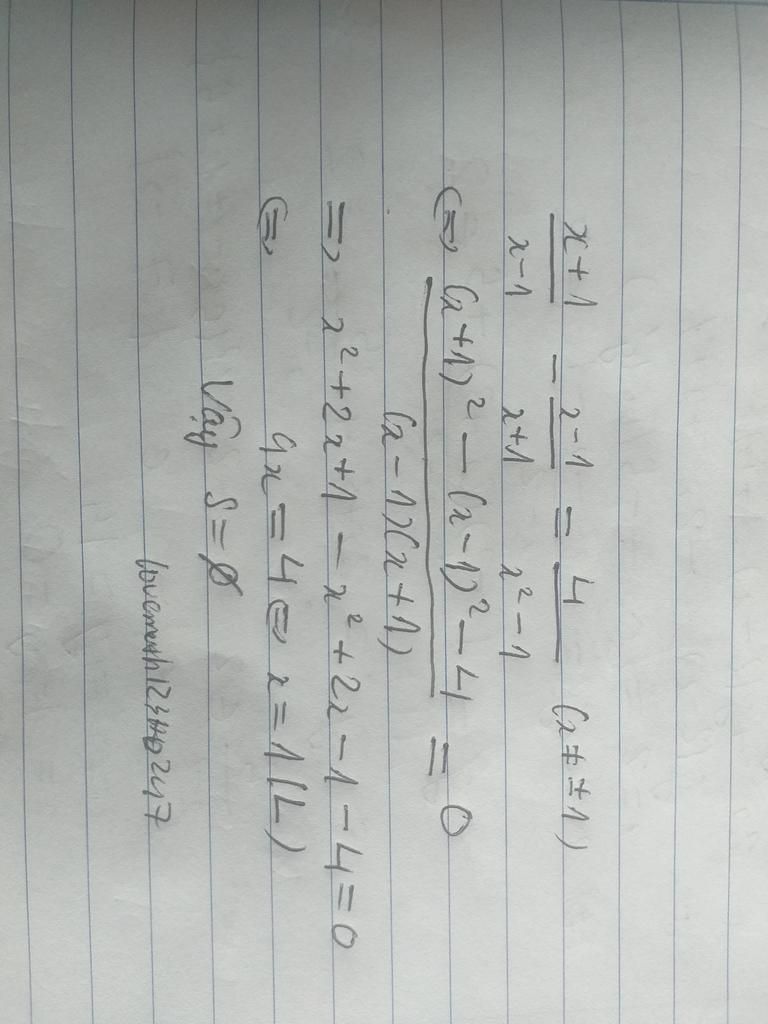 x+1/x-1 - x-1/x+1 = 4/x²-1 (x ≠ ±1)
(=> (x+1)² - (x-1)² - 4/(x-1)(x+1) = 0
=> x²+2x+1 - x²+2x-1-4=0
(=> 4x=4 <=> x=1 (L)
Vậy S=Ø